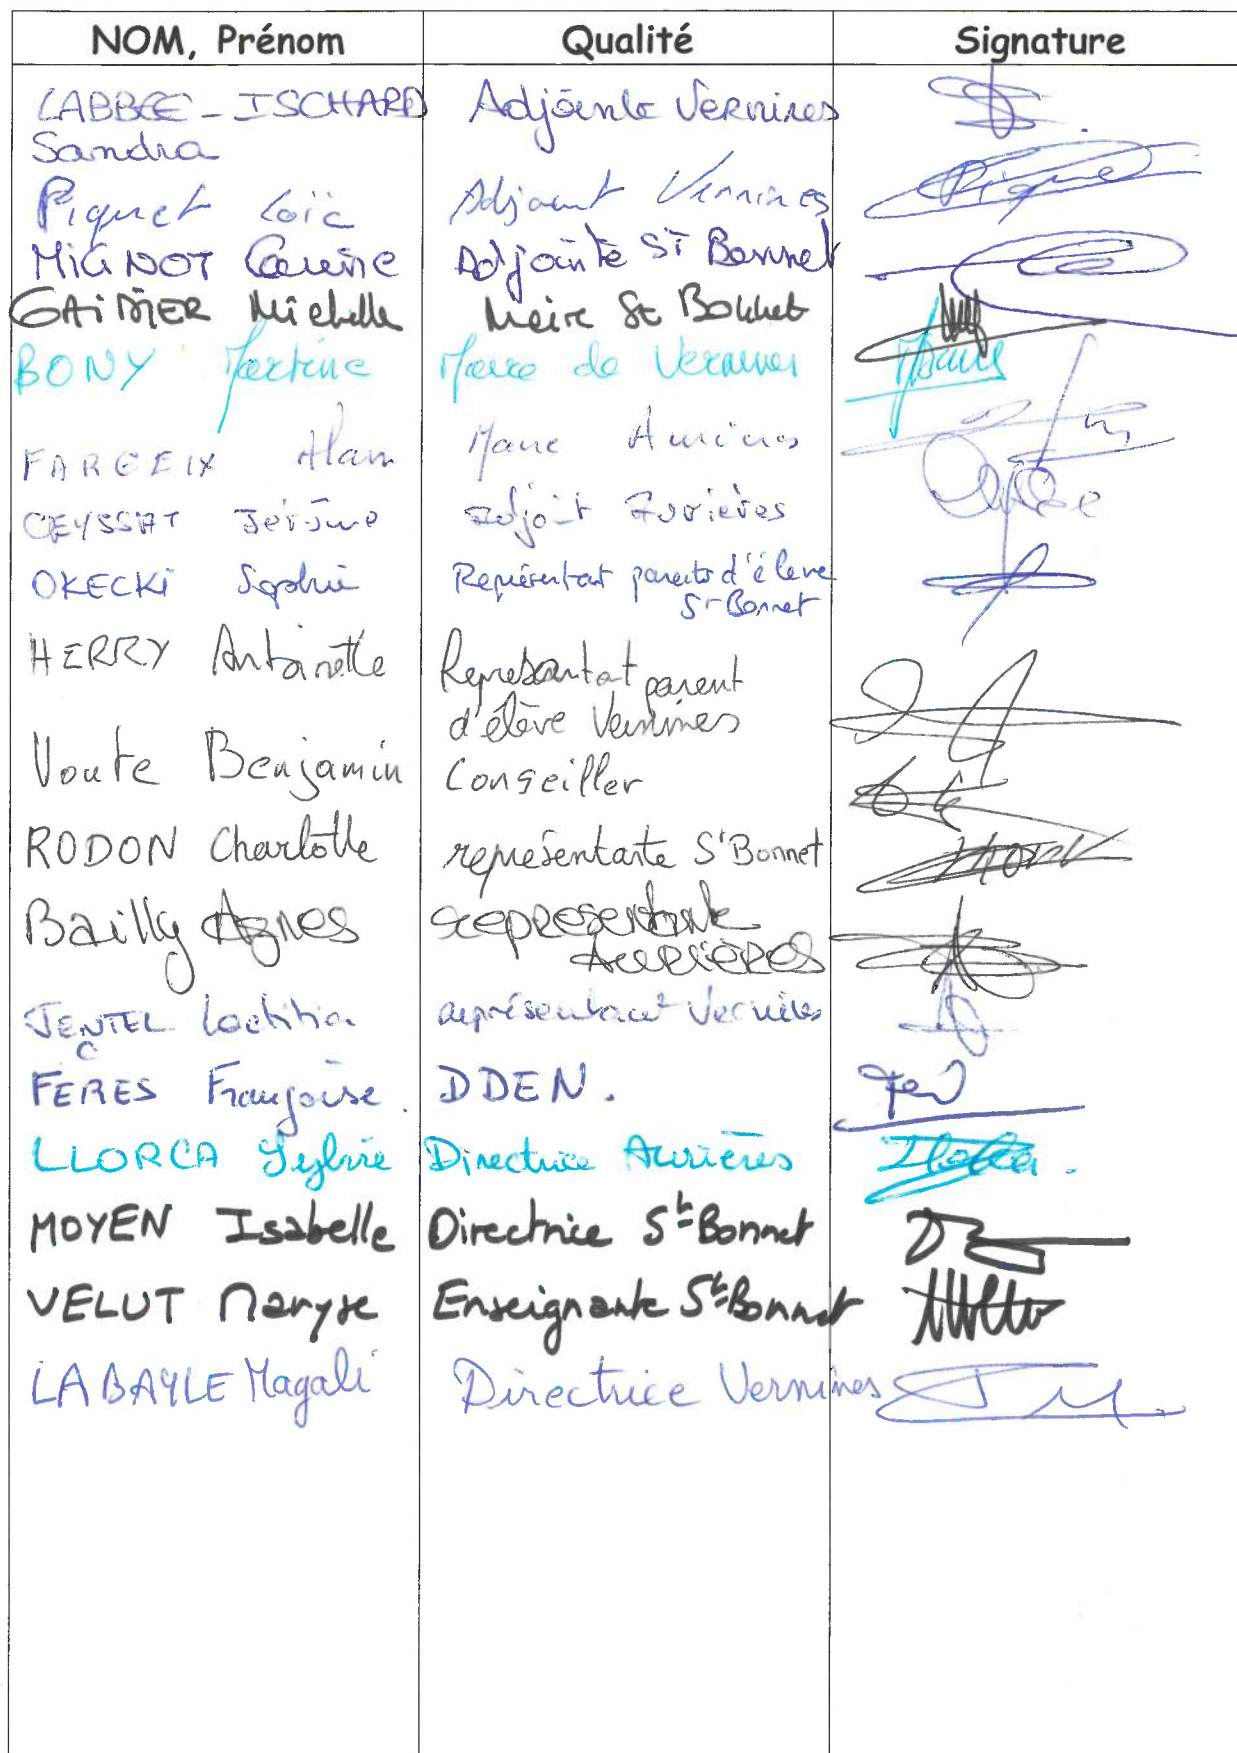 NOM, Prénom Qualité Signature
LABBEE - ISCHARD Adjointe Vernines
Sandra
Piquet Loïc Adjoint Vernines Piquet
MIGNOT Adjointe St Bonnet
Michelle Maire St Bonnet
BONY Martine Maire de Vernines
FARGEIX Alain Maire Aurières
CEYSSAT Jérôme adjoint Aurières
OKECKI Sophie Représentant parents d'élève
St-Bonnet
HERRY Antoinette Représentat parent
d'élève Vernines
Voute Benjamin Conseiller
RODON Charlotte représentante St Bonnet
Bailly Agnes representante
AURIÈRES
JENTEL Laetitia représentant Vernines
FERES Françoise. DDEN.
LLORCA Sylvie Directrice Aurières
MOYEN Isabelle Directrice St-Bonnet
VELUT Maryse Enseignante St-Bonnet
LABAYLE Magali Directrice Vernines